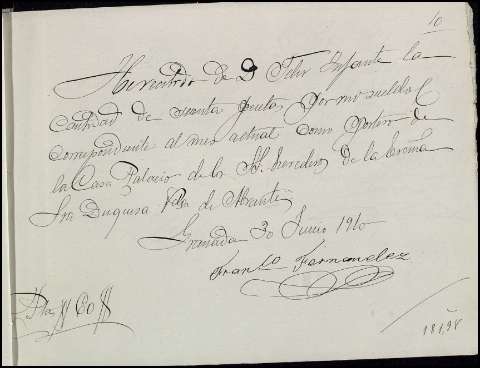 10
He recibido de D Felix Infante la
cantidad de pesetas por mi sueldo
correspondiente al mes actual como portero de
la Casa Palacio de los SS. herederos de la Excma
Sra Duquesa Vda de Abrantes
Granada 30 Junio 1910
Franco Fernandez
Ptas 60